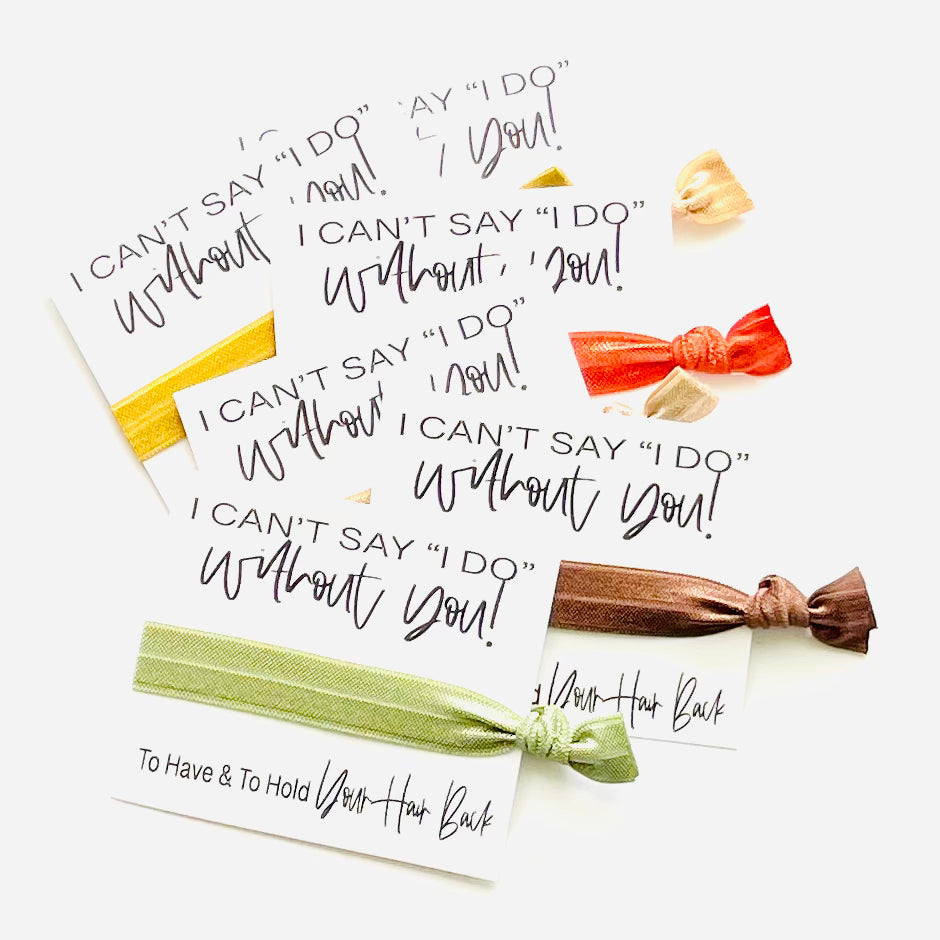 AY “I DO”
You!
I CAN'T SAY “I DO”
without you!
I CAN'T SAY “I DO”
without you!
I CAN'T SAY “I DO”
without you!
I CAN'T SAY “I DO”
without you!
Your Hair Back
I CAN'T SAY “I DO”
without you!
To Have & To Hold Your Hair Back